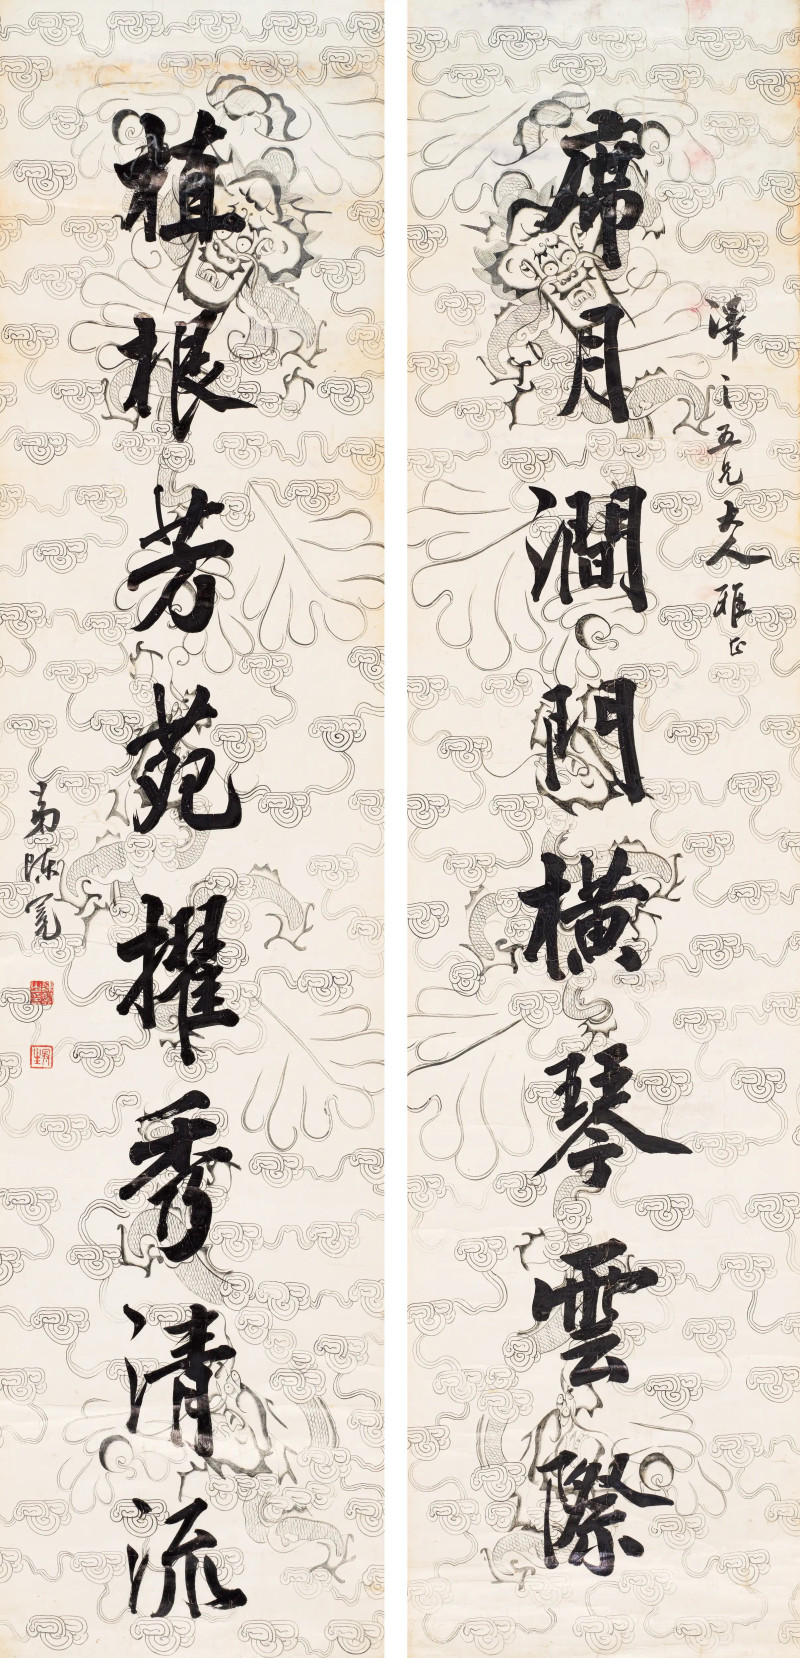 澤之五兄大人雅正
席月澗門橫琴雲際
植根芳苑擢秀清流
弟陳冕